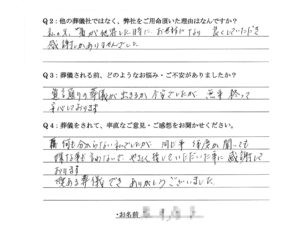 Q2：他の葬儀社ではなく、弊社をご用命頂いた理由はなんですか？
私の兄、 が他界した時に、お世話になり 良くしていただき
感謝しかありませんでした
Q3：葬儀される前、どのようなお悩み・ご不安がありましたか？
皆 の葬儀が出来るか 不安でしたが 無事終って
安心しております
Q4：葬儀をされて、率直なご意見・ご感想をお聞かせください。
何も分からない私でしたが 同じ事 何度か 聞いても
嫌な事も 言わないで、やさしく 接していただいた事に 感謝して
おります
葬儀でき ありがとうございました
・お名前